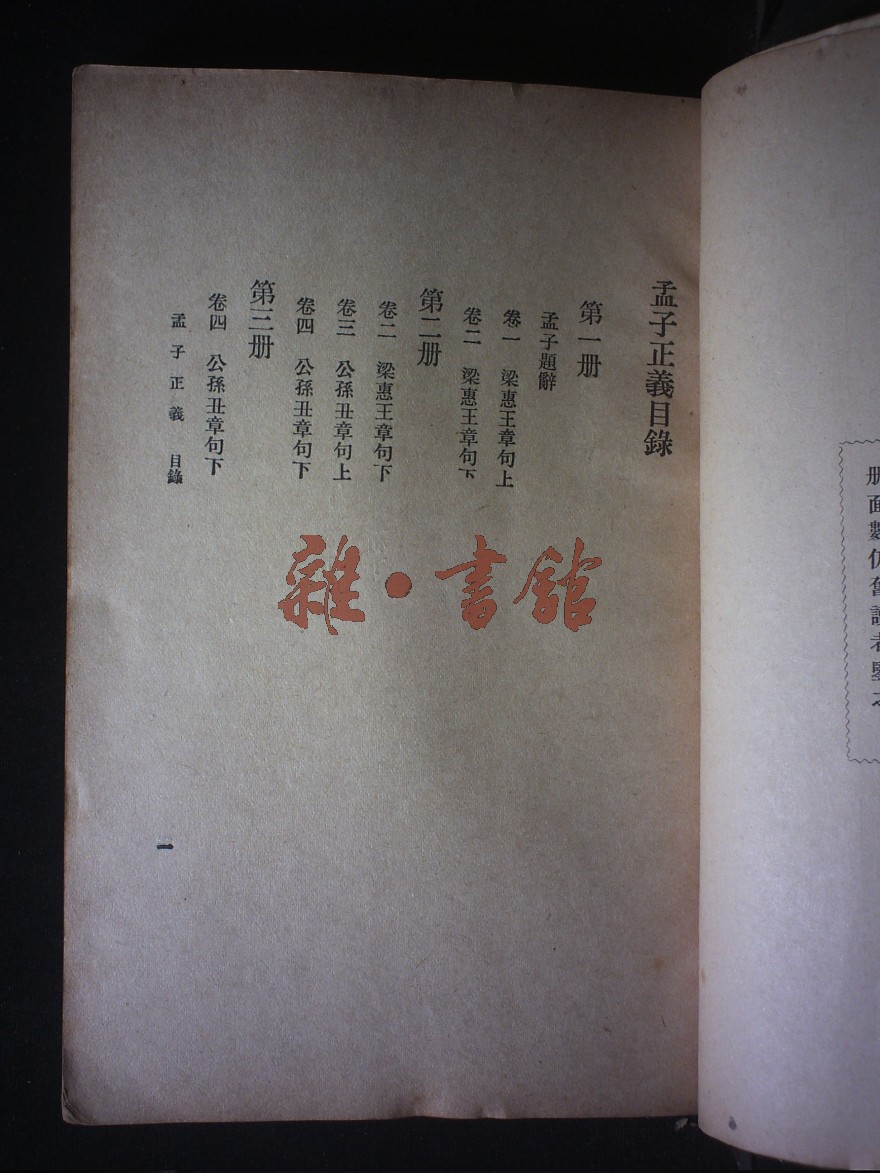 冊面數仍舊讀者鑒之
孟子正義目錄
第一冊
孟子題辭
卷一 梁惠王章句上
卷二 梁惠王章句下
第二冊
卷二 梁惠王章句下
卷三 公孫丑章句上
卷四 公孫丑章句下
第三冊
卷四 公孫丑章句下
孟子正義 目錄
一
雜·書館